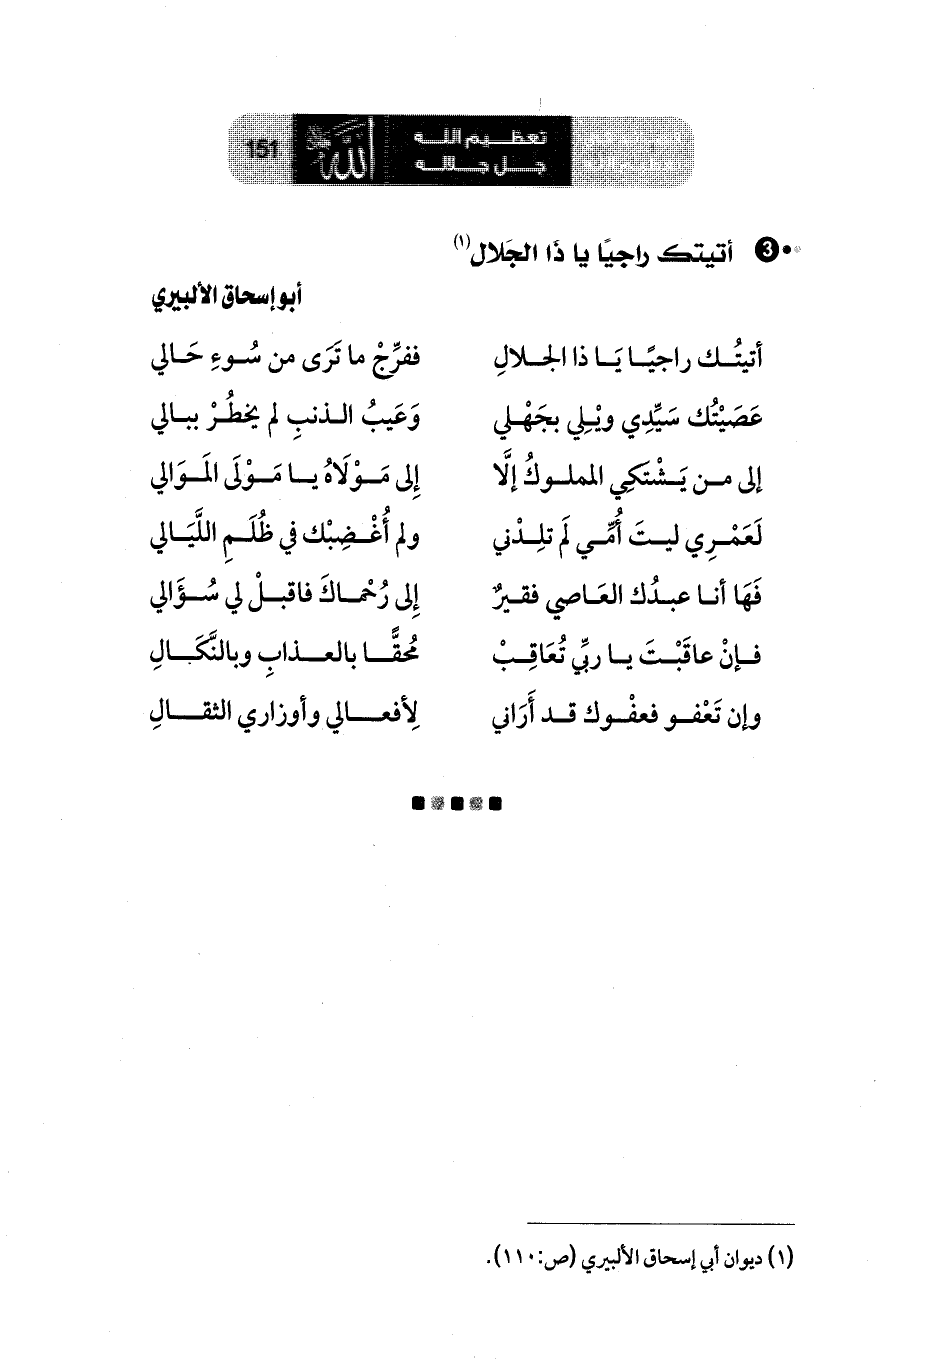 151
تعظيم الله
جل جلاله
3 أتيتك راجيًا يا ذا الجَلال(١)
أبو إسحاق الألبيري
أتيتُك راجيًا يَا ذا الجلالِ ففرِّجْ ما تَرَى من سُوءِ حَالي
عَصَيْتُك سَيِّدِي ويْلِي بجَهْلي وَعَيبُ الذنبِ لم يخطُرْ ببالي
إلى من يَشْتكِي المملوكُ إلَّا إِلى مَوْلَاهُ يا مَوْلَى المَوَالي
لَعَمْرِي ليتَ أُمِّي لَم تلِدْني ولم أُغْضِبْك في ظُلَمِ اللَّيَالي
فَهَا أنا عبدُك العَاصي فقيرٌ إِلى رُحْماكَ فاقبلْ لي سُؤَالي
فإنْ عاقَبْتَ يا ربِّي تُعَاقِبْ مُحقًّا بالعذابِ وبالنَّكَالِ
وإن تَعْفو فعفْوك قد أَرَاني لِأفعالي وأوزاري الثقالِ
(١) ديوان أبي إسحاق الألبيري (ص:١١٠).